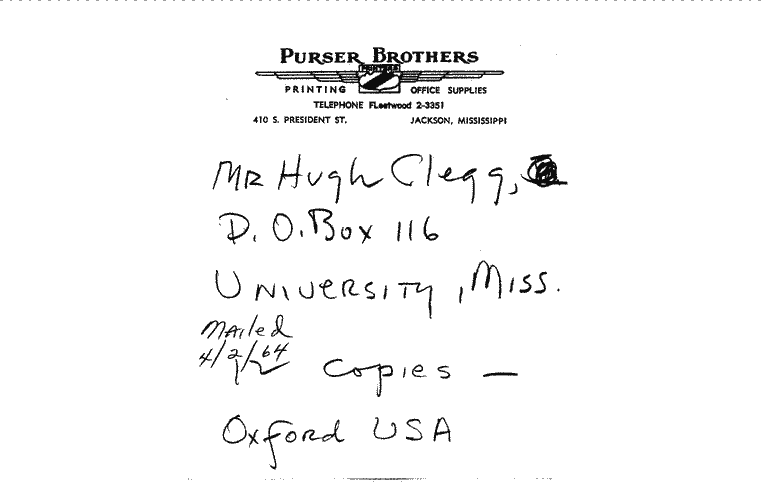 PURSER BROTHERS
PRINTERS
PRINTING OFFICE SUPPLIES
TELEPHONE FLeetwood 2-3351
410 S. PRESIDENT ST. JACKSON, MISSISSIPPI
MR Hugh Clegg,
P. O. Box 116
UNIVERSITY, MISS.
MAiled
4/2/64
Copies —
Oxford USA